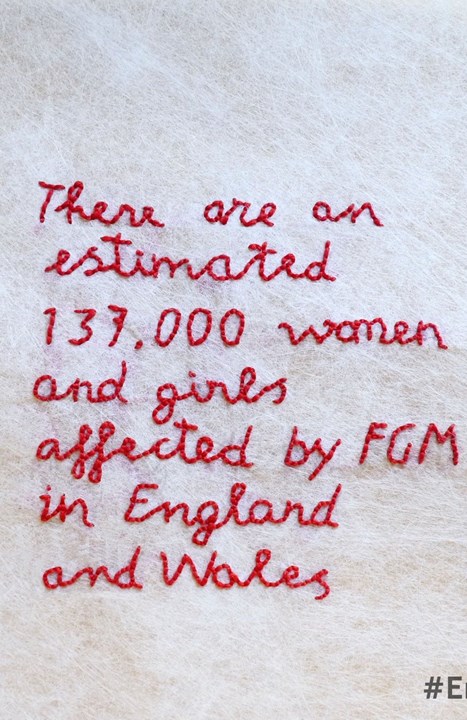 There are an
estimated
137,000 women
and girls
affected by FGM
in England
and Wales
#E